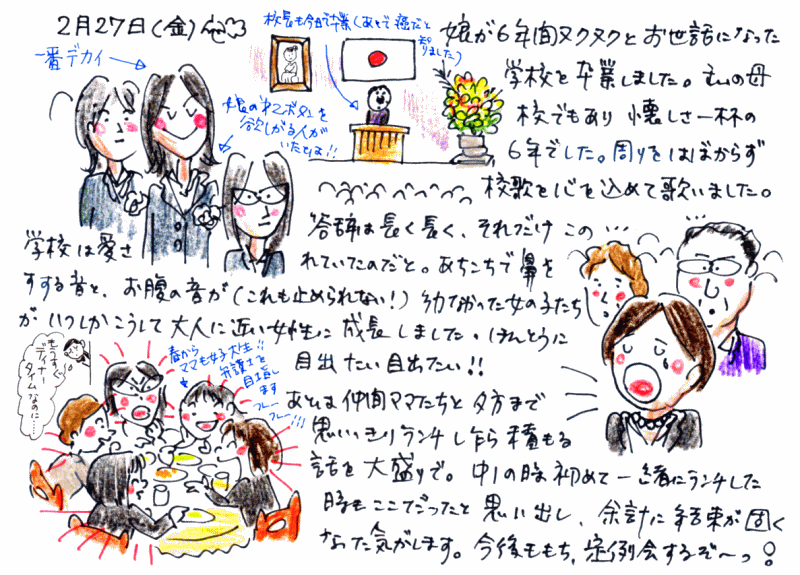 2月27日(金)
校長も今日で卒業(あとで癌だと
知りました)
一番デカイ→
娘の第2ボタンを
欲しがる人が
いたとは!!
娘が6年間ヌクヌクとお世話になった
学校を卒業しました。私の母
校でもあり懐しさ一杯の
6年でした。周りをはばからず
校歌を心を込めて歌いました。
答辞は長く長く、それだけこの
学校は愛さ
れていたのだと。あちこちで鼻を
すする音と、お腹の音が(これも止められない!)幼なかった女の子たち
がいつしかこうして大人に近い女性に成長しました。ほんとうに
目出たい目出たい!!
もうすぐ
ディナー
タイムなのに…
春から
ママも女子大生!!
弁護士を
目指し
ます
フレー
フレー!!!
あとは仲間ママたちと夕方まで
思いっきりランチし乍ら積もる
話を大盛りで。中1の時初めて一緒にランチした
時もここでだったと思い出し、余計に結束が固く
なった気がします。今後ももち、症例会するぞ~っ!